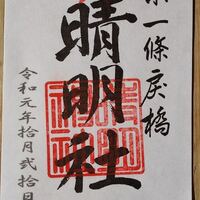 一條戻橋
晴明社
令和元年拾月弐拾日